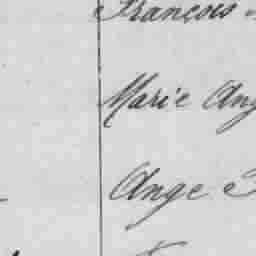 François
Marie Ang
Ange